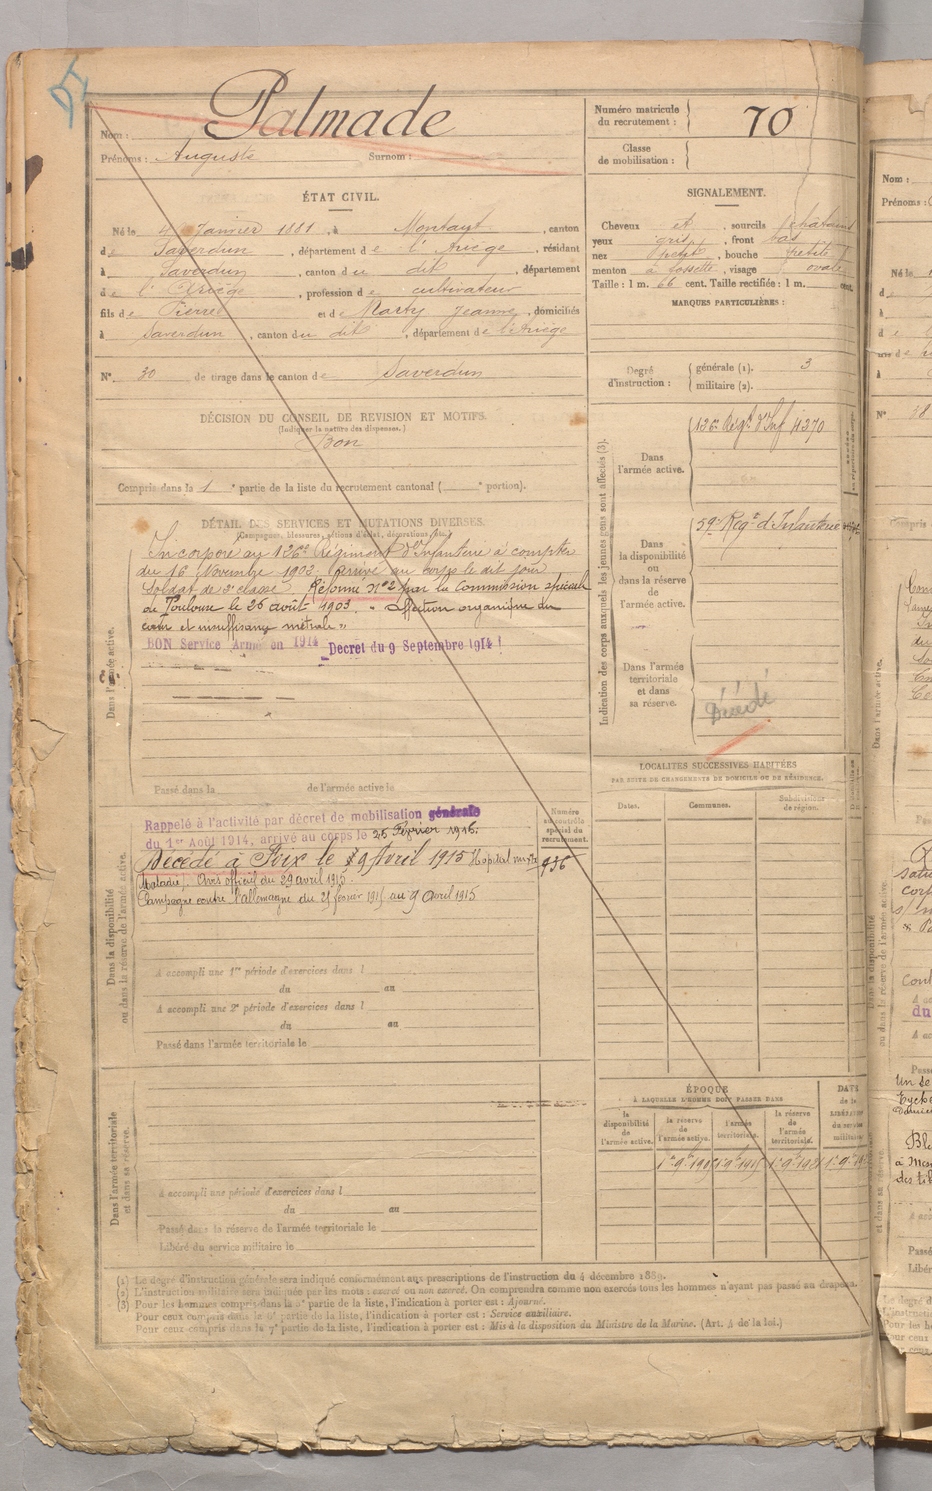 Palmade
Nom :
Prénoms : Auguste Surnom :
ÉTAT CIVIL.
Né le 4 Janvier 1881, à Montaut, canton
de Saverdun, département de l'Ariège, résidant
à Saverdun, canton du dit, département
de l'Ariège, profession de cultivateur
fils de Pierre et de Marty Jeanne, domiciliés
à Saverdun, canton du dit, département de l'Ariège
N° 30 de tirage dans le canton de Saverdun
DÉCISION DU CONSEIL DE REVISION ET MOTIFS.
(Indiquer la nature des dispenses.)
Bon
Compris dans la 1e partie de la liste du recrutement cantonal ( e portion).
DÉTAIL DES SERVICES ET MUTATIONS DIVERSES.
(Campagnes, blessures, actions d'éclat, décorations, etc.)
Dans l'armée active.
Incorporé au 126e Régiment d'Infanterie à compter
du 16 Novembre 1902. Arrivé au corps le dit jour
Soldat de 2e classe. Réformé n° 2 par la Commission spéciale
de Toulouse le 26 août 1903. "Affection organique du
cœur et insuffisance mitrale"
BON Service Armé en 1914 Decret du 9 Septembre 1914 !
Passé dans la de l'armée active le
Dans la disponibilité
ou dans la réserve de l'armée active.
Rappelé à l'activité par décret de mobilisation générale
du 1er Août 1914, arrivé au corps le 25 Février 1915.
Décédé à Foix le 9 Avril 1915 Hopital mixte
Maladie. Avis officiel du 29 avril 1915.
Campagne contre l'allemagne du 25 février 1915 au 9 avril 1915
Numéro
au contrôle
spécial du
recrutement.
936
A accompli une 1re période d'exercices dans l
du au
A accompli une 2e période d'exercices dans l
du au
Passé dans l'armée territoriale le
Dans l'armée territoriale
et dans sa réserve.
A accompli une période d'exercices dans l
du au
Passé dans la réserve de l'armée territoriale le
Libéré du service militaire le
Numéro matricule
du recrutement : 70
Classe
de mobilisation :
SIGNALEMENT.
Cheveux et, sourcils châtains
yeux gris, front bas
nez petit, bouche petite
menton à fossette, visage ovale
Taille : 1 m. 66 cent. Taille rectifiée : 1 m. cent.
MARQUES PARTICULIÈRES :
Degré
d'instruction :
générale (1). 3
militaire (2).
Indication des corps auxquels les jeunes gens sont affectés (3).
Dans
l'armée active.
126e Régt d'Inf 4370
Dans
la disponibilité
ou
dans la réserve
de
l'armée active.
59e Regt d'Infanterie
Dans l'armée
territoriale
et dans
sa réserve.
Décédé
LOCALITÉS SUCCESSIVES HABITÉES
PAR SUITE DE CHANGEMENTS DE DOMICILE OU DE RÉSIDENCE.
Dates. Communes. Subdivisions
de région.
ÉPOQUE
À LAQUELLE L'HOMME DOIT PASSER DANS
la
disponibilité
de
l'armée active.
la réserve
de
l'armée active.
l'armée
territoriale.
la réserve
de
l'armée
territoriale.
DATE
de la
LIBÉRATION
du service
militaire
(1) Le degré d'instruction générale sera indiqué conformément aux prescriptions de l'instruction du 4 décembre 1889.
(2) L'instruction militaire sera indiquée par les mots : exercé ou non exercé. On comprendra comme non exercés tous les hommes n'ayant pas passé au drapeau.
(3) Pour les hommes compris dans la 5e partie de la liste, l'indication à porter est : Ajourné.
Pour ceux compris dans la 6e partie de la liste, l'indication à porter est : Service auxiliaire.
Pour ceux compris dans la 7e partie de la liste, l'indication à porter est : Mis à la disposition du Ministre de la Marine. (Art. 4 de la loi.)
Nom :
Prénoms :
Né le